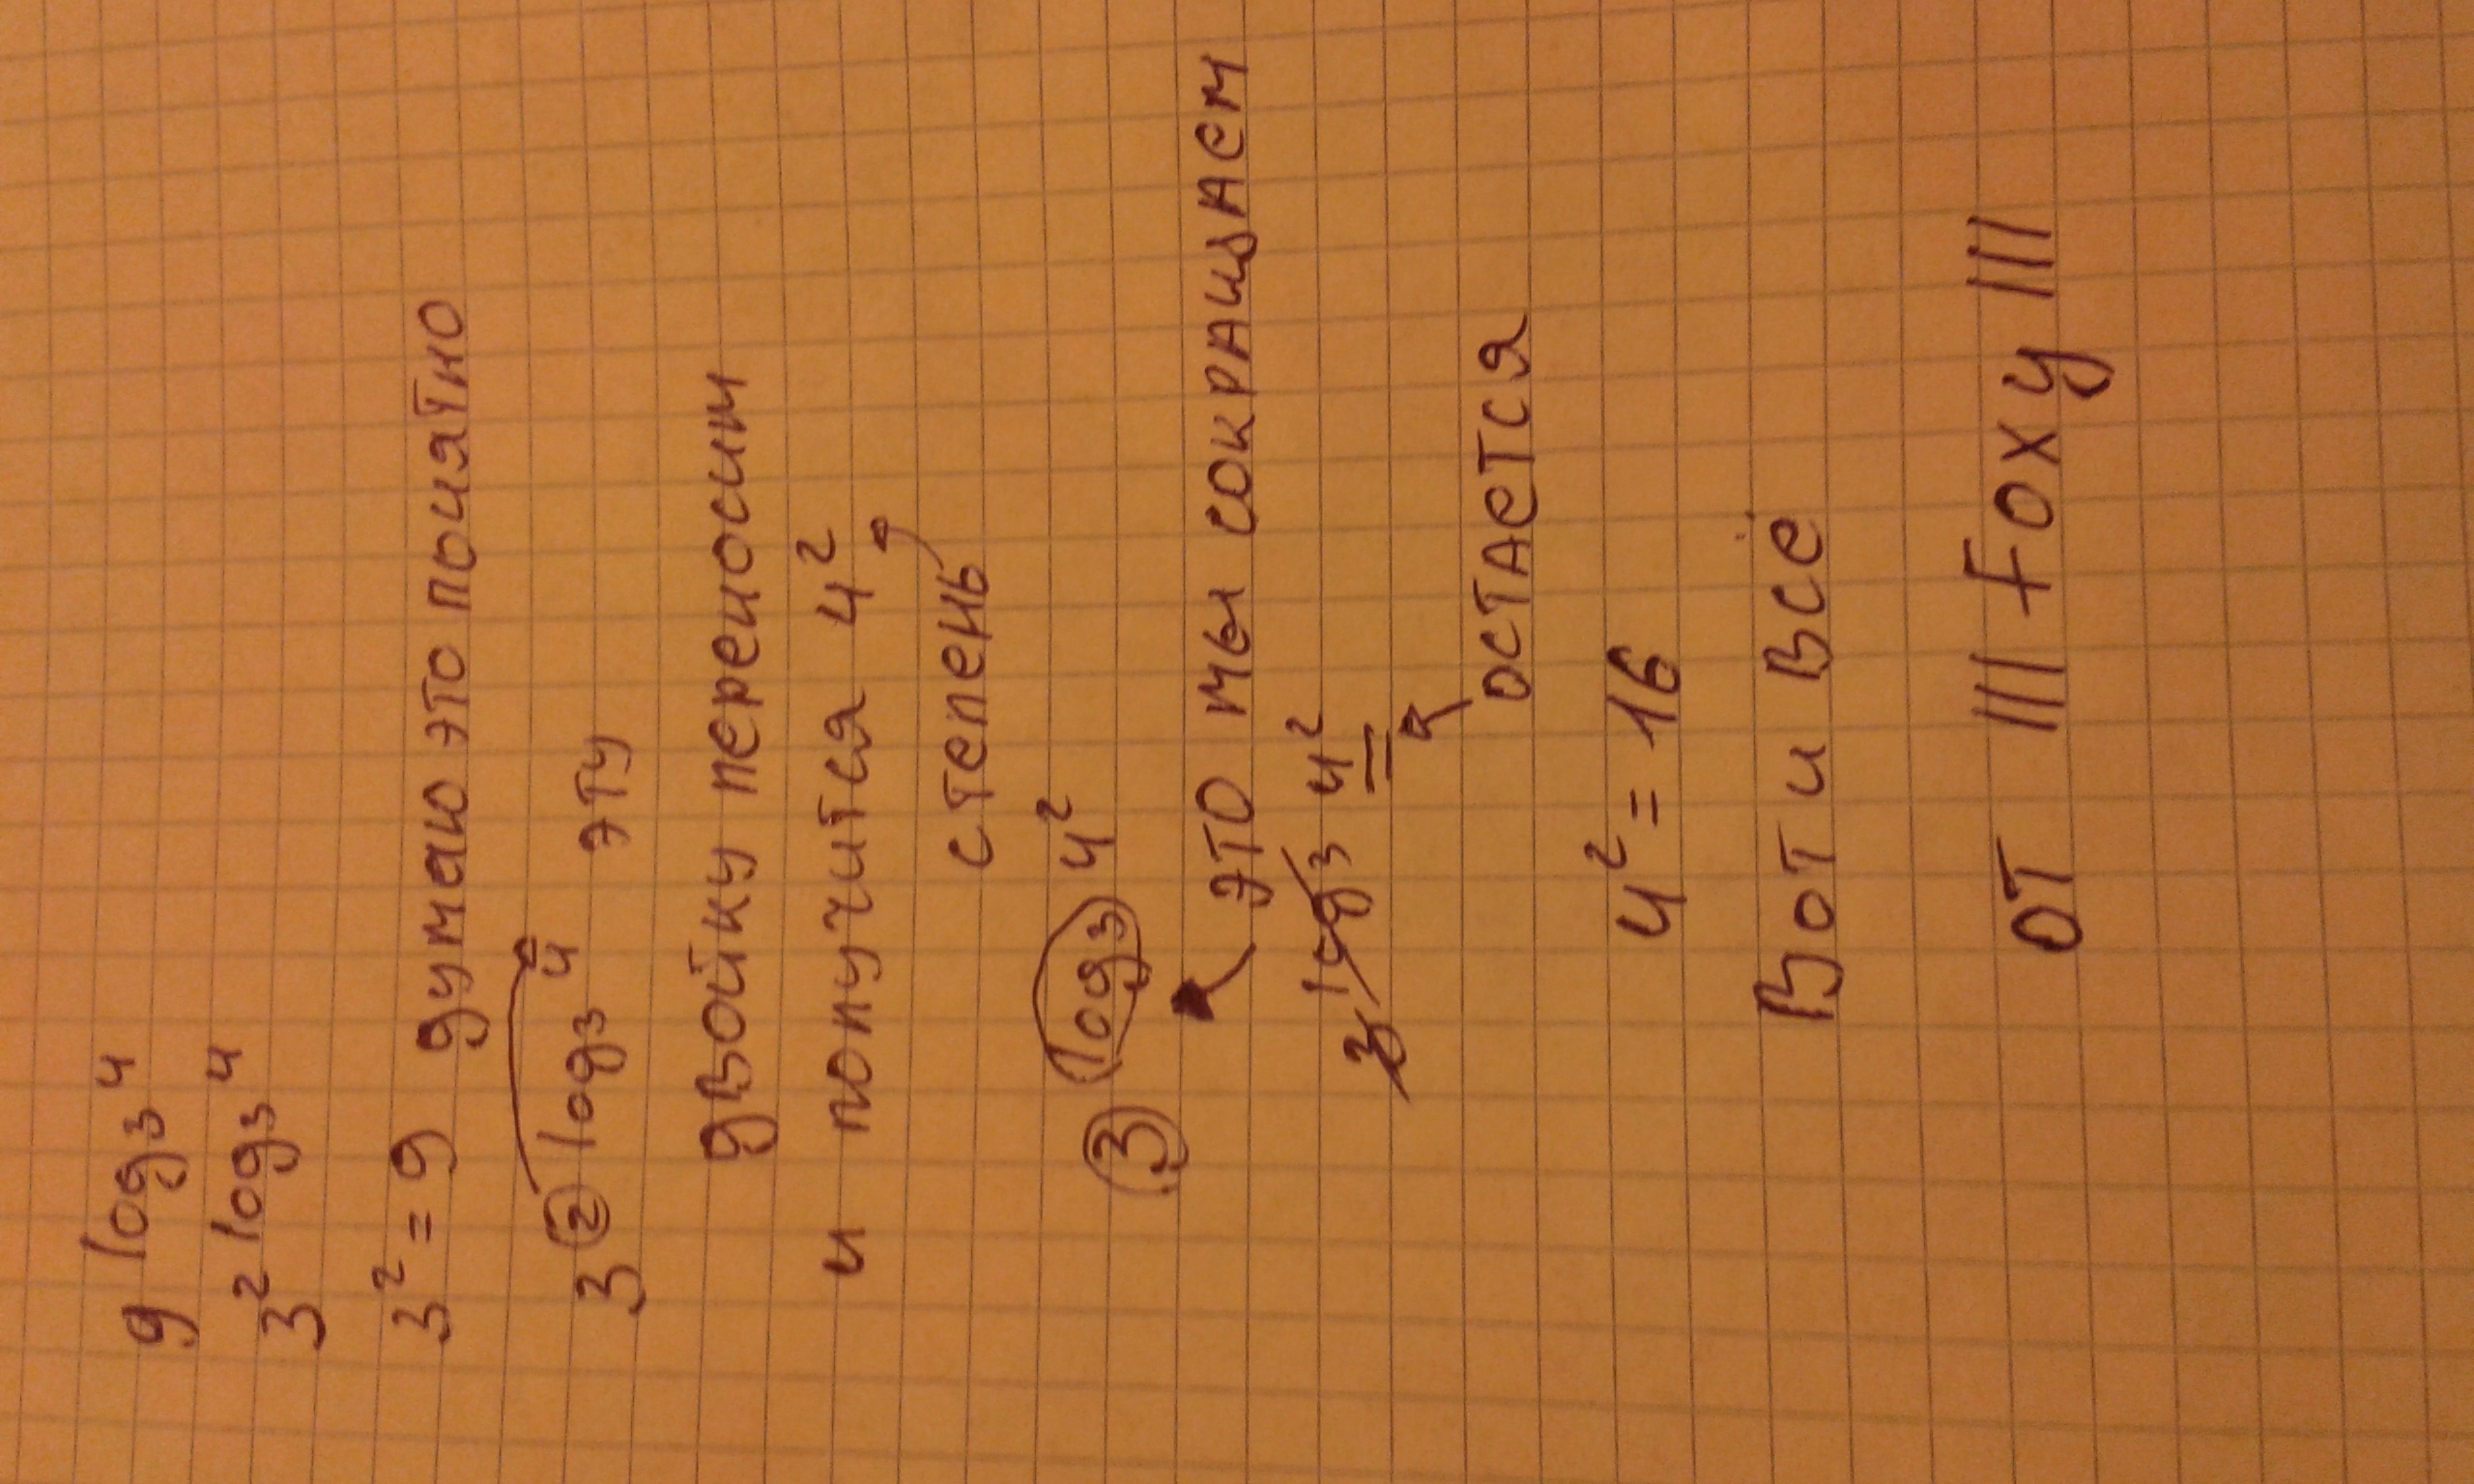 9 log₃ 4
3² log₃ 4
3² = 9 думаю это понятно
3② log₃ 4 эту
двойку переносим
и получится 4²
степень
③ log₃ 4²
это мы сокращаем
3 log₃ 4²
остается
4² = 16
Вот и всё
от ||| Foxy |||